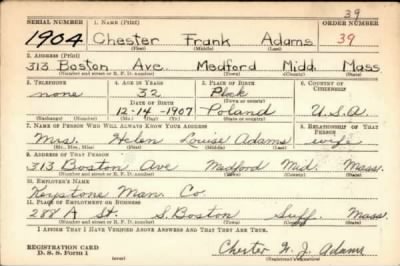 39
SERIAL NUMBER 1. NAME (Print) ORDER NUMBER
1904 Chester Frank Adams 39
(First) (Middle) (Last)
2. ADDRESS (Print)
313 Boston Ave. Medford Midd. Mass
(Number and street or R. F. D. number) (Town) (County) (State)
3. TELEPHONE 4. AGE IN YEARS 5. PLACE OF BIRTH 6. COUNTRY OF CITIZENSHIP
none 32 Plock
DATE OF BIRTH (Town or county)
12-14-1907 Poland U.S.A.
(Exchange) (Number) (Mo.) (Day) (Yr.) (State or country)
7. NAME OF PERSON WHO WILL ALWAYS KNOW YOUR ADDRESS 8. RELATIONSHIP OF THAT PERSON
Mrs. Helen Louise Adams wife
(Mr., Mrs., Miss) (First) (Middle) (Last)
9. ADDRESS OF THAT PERSON
313 Boston Ave Medford Mid. Mass.
(Number and street or R. F. D. number) (Town) (County) (State)
10. EMPLOYER'S NAME
Keystone Man. Co.
11. PLACE OF EMPLOYMENT OR BUSINESS
288 A St. S. Boston Suff. Mass.
(Number and street or R. F. D. number) (Town) (County) (State)
I AFFIRM THAT I HAVE VERIFIED ABOVE ANSWERS AND THAT THEY ARE TRUE.
REGISTRATION CARD
D. S. S. Form 1 Chester Adams
(Registrant's signature)